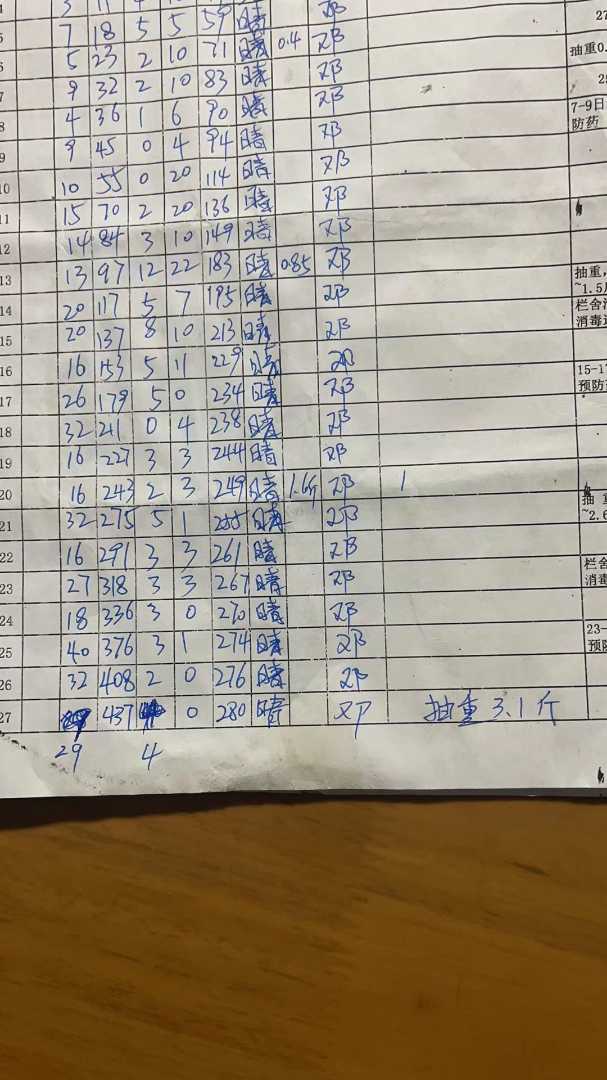 4 3 11 4 晴 邓
5 7 18 5 5 59 晴 邓
6 5 23 2 10 71 晴 0.4 邓 抽重0.
7 9 32 2 10 83 晴 邓
8 4 36 1 6 90 晴 邓 7-9日 防药
9 9 45 0 4 94 晴 邓
10 10 55 0 20 114 晴 邓
11 15 70 2 20 136 晴 邓
12 14 84 3 10 149 晴 邓
13 13 97 12 22 183 晴 0.85 邓 抽重, ~1.5
14 20 117 5 7 195 晴 邓 栏舍 消毒
15 20 137 8 10 213 晴 邓
16 16 153 5 11 229 晴 邓 15-17 预防
17 26 179 5 0 234 晴 邓
18 32 211 0 4 238 晴 邓
19 16 227 3 3 244 晴 邓
20 16 243 2 3 249 晴 1.6斤 邓 1 抽 重 ~2.6
21 32 275 5 1 255 晴 邓
22 16 291 3 3 261 晴 邓 栏舍 消毒
23 27 318 3 3 267 晴 邓
24 18 336 3 0 270 晴 邓 23- 预防
25 40 376 3 1 274 晴 邓
26 32 408 2 0 276 晴 邓
27 437 0 280 晴 邓 抽重3.1斤
29 4